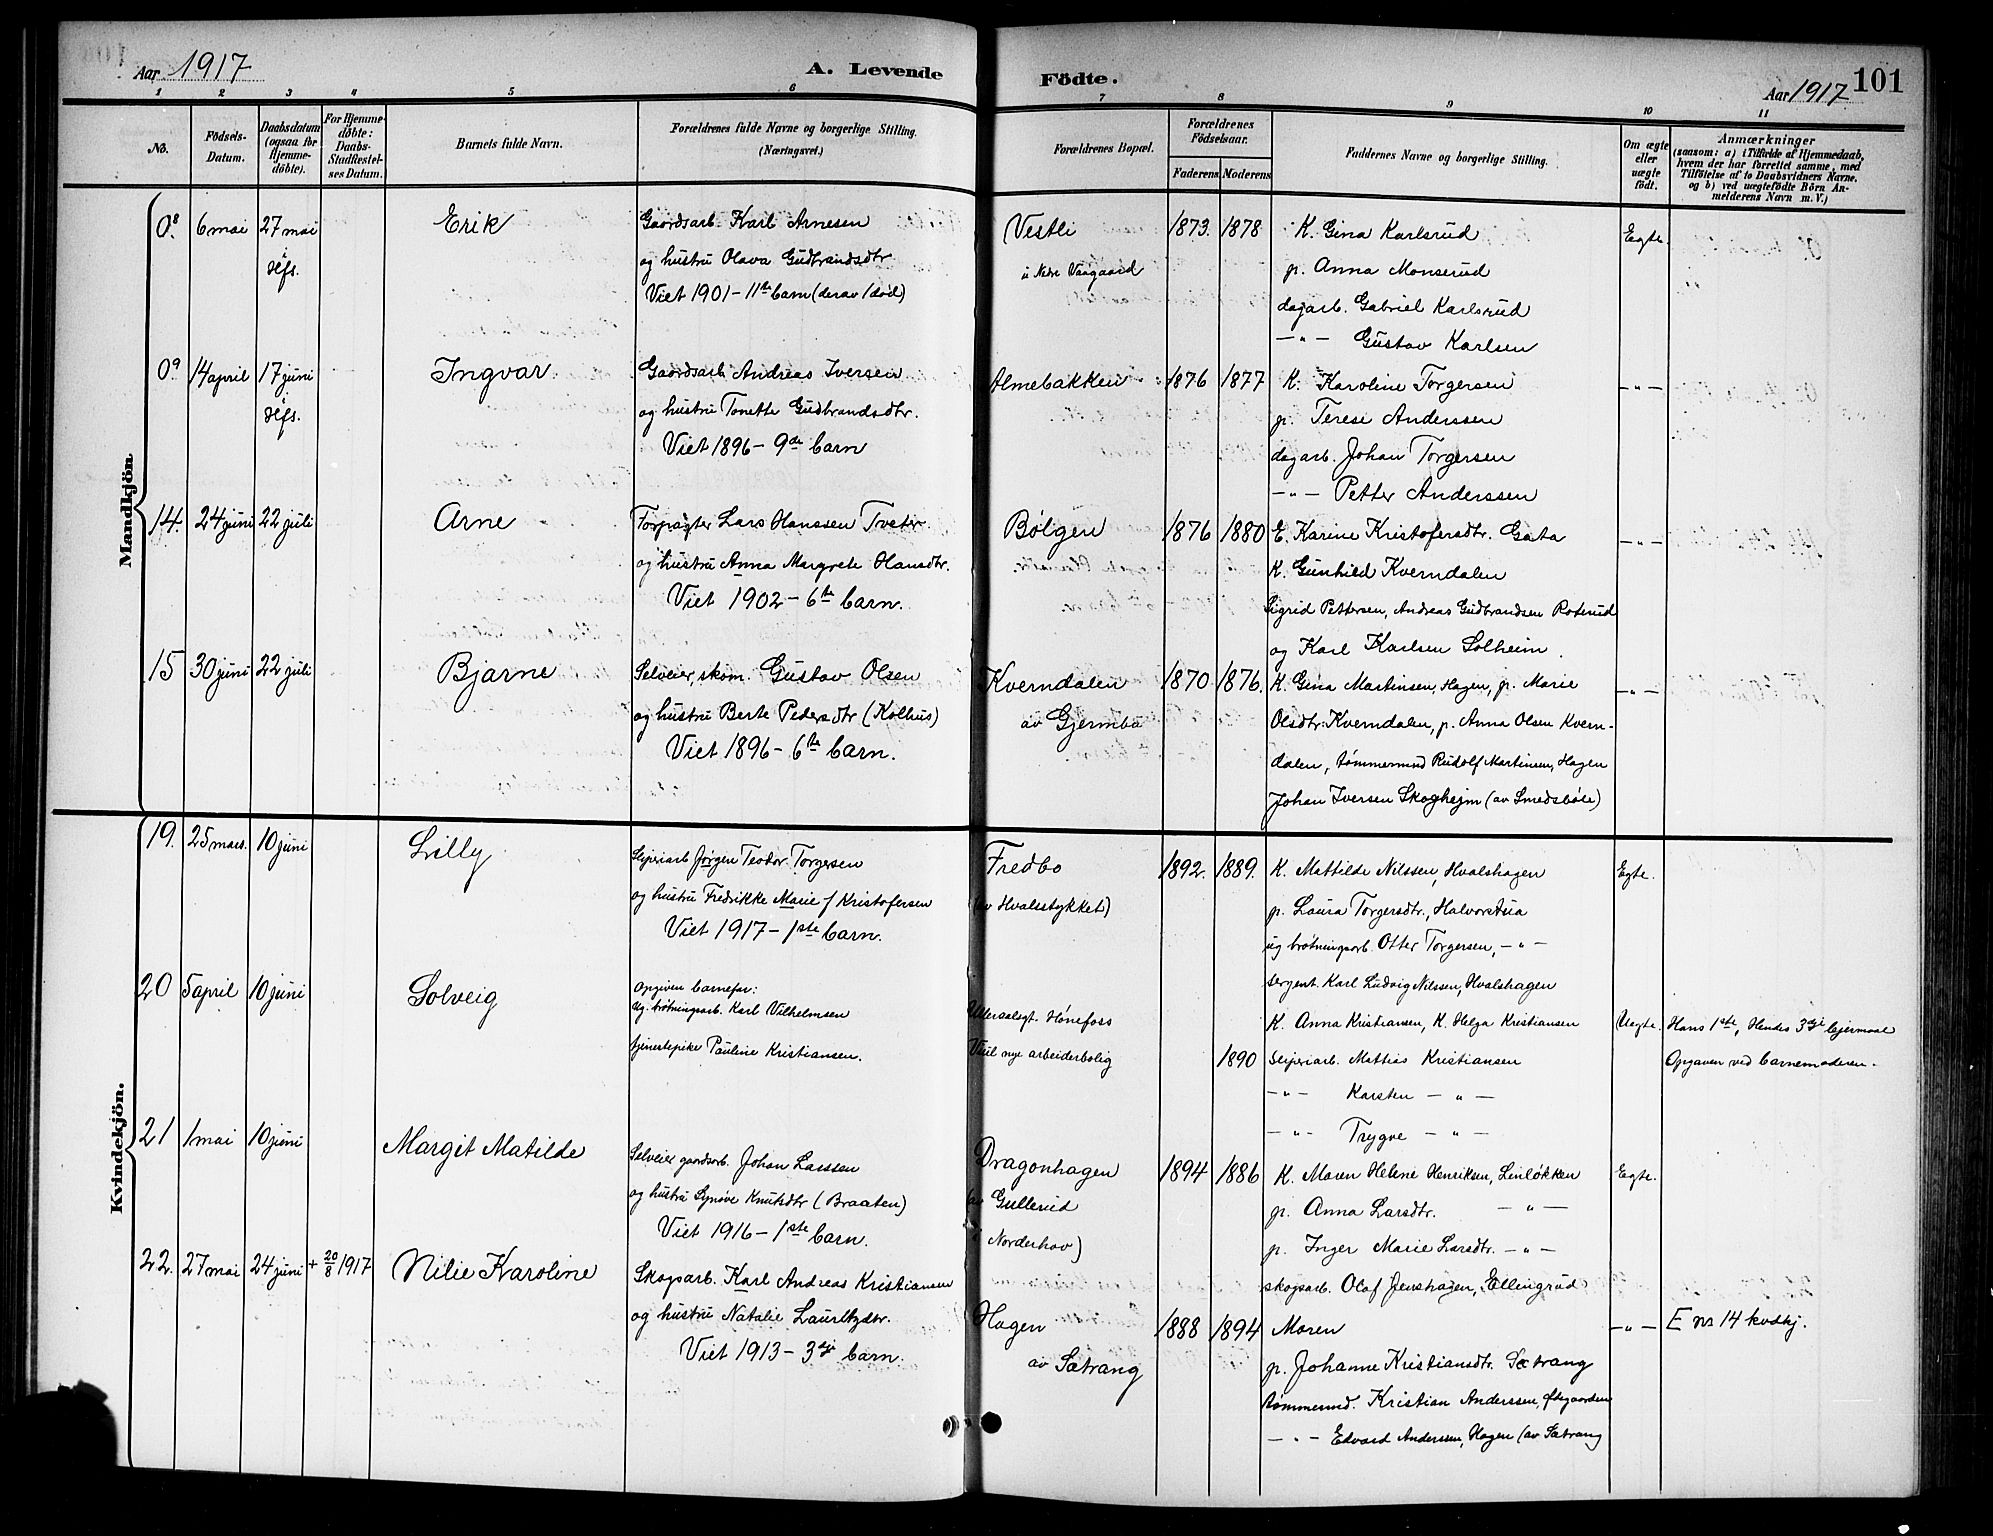 Aar 1917
A. Levende
Födte.
Aar 1917
101
1 2 3 4 5 6 7 8 9 10 11
No.
Födsels-
Datum.
Daabsdatum
(ogsaa for
Hjemme-
döbte).
For Hjemme-
döbte:
Daabs-
Stadfæstel-
ses Datum.
Barnets fulde Navn.
Forældrenes fulde Navne og borgerlige Stilling.
(Næringsvei.)
Forældrenes Bopæl.
Forældrenes
Födselsaar.
Faderens Moderens
Faddernes Navne og borgerlige Stilling.
Om ægte
eller
uægte
født.
Anmærkninger
(saasom: a) i Tilfælde af Hjemmedaab,
hvem der har forrettet samme, med
Tilføielse af to Daabsvidners Navne,
og b) ved uægtefødte Börn An-
melderens Navn m. V.)
Mandkjön
08. 6 mai 27 mai
i
Hfs.
Erik
Gaardsarb. Karl Arnesen
og hustru Olava Gudbrandsdtr.
Viet 1901 - 11te barn (derav 1 død)
Vestli
u Nedre Vaagaard
1873. 1878
K. Gina Karlsrud
p. Anna Monserud
dagarb. Gabriel Karlsrud
— " — Gustav Karlsen
Egte.
09. 14 april 17 juni
i
Hfs.
Ingvar
Gaardsarb. Andreas Iversen
og hustru Tonette Gudbrandsdtr.
Viet 1896 - 9de barn
Almebakken
1876 1877
K. Karoline Torgersen
p. Terese Anderssen
dagarb. Johan Torgersen
— " — Petter Anderssen
— " —
14. 24 juni 22 juli
Arne
Forpagter Lars Hanssen Tveter
og hustru Anna Margrete Hansdtr.
Viet 1902 - 6te barn.
Bølgen
1876 1880
E. Karine Kristofersdtr. Gata
K. Gunhild Kverndalen
Sigrid Pettersen, Andreas Gudbrandsen Roterud
og Karl Karlsen Solheim.
— " —
15 30 juni 22 juli
Bjarne
Selveier, skom. Gustav Olsen
og hustru Berte Pedersdtr (Kolhus)
Viet 1896 - 6te barn.
Kverndalen
av Gjermbu
1870 1876.
K. Gina Martinsen, Hagen, p. Marie
Olsdtr. Kverndalen, p. Anna Olsen Kvern-
dalen, tømmermnd Rudolf Martinsen, Hagen
Johan Iversen Skogheim (av Smedsbøle)
— " —
Kvindekjön.
19. 25 mars. 10 juni
Lilly
Sliperiarb Jørgen Teodor Torgersen
og hustru Fredrikke Marie f Kristofersen
Viet 1917 - 1ste barn.
Fredbo
(av Hvalsstykket)
1892. 1889.
K. Mattilde Nilssen, Hvalshagen
p. Laura Torgersdtr., Halvorstua
ug brøtningsarb. Otter Torgersen, — " —
sergent. Karl Ludvig Nilssen, Hvalshagen
Egte.
20 5 april 10 juni
Solveig
Opgiven barnefar:
Ug. brøtningsarb. Karl Vilhelmsen
tjenestepike Pauline Kristiansen.
Ullersalegt. Hønefoss
Viul nye arbeiderbolig
1890
K. Anna Kristiansen, K. Helga Kristiansen
Sliperiarb. Mattias Kristiansen
— " — Karsten — " —
— " — Trygve — " —
Uegte.
Hans 1ste, Hendes 3dje leiermaal
Opgaven ved barnemoderen.
21 1 mai 10 juni
Margit Matilde
Selveier gaardsarb. Johan Larssen
og hustru Synøve Knutsdtr (Braaten)
Viet 1916 - 1ste barn.
Dragonhagen
av Gullerud
i Norderhov)
1894 1886
K. Maren Helene Henriksen, Linløkken
p. Anna Larsdtr. — " —
p. Inger Marie Larsdtr. — " —
skogsarb. Olaf Jenshagen, Ellingrud
Egte.
22. 27 mai 24 juni + 20/8 1917
Nilie Karoline
Skogsarb. Karl Andreas Kristiansen
og hustru Natalie Lauritzdtr.
Viet 1913 - 3dje barn.
Hagen
av Sætrang
1888 1894
Moren
p. Johanne Kristiansdtr. Sætrang
tømmermnd. Kristian Anderssen,
— " — Edvard Anderssen, Hagen (av Sætrang
— " —
E nr 14 kvdkj.